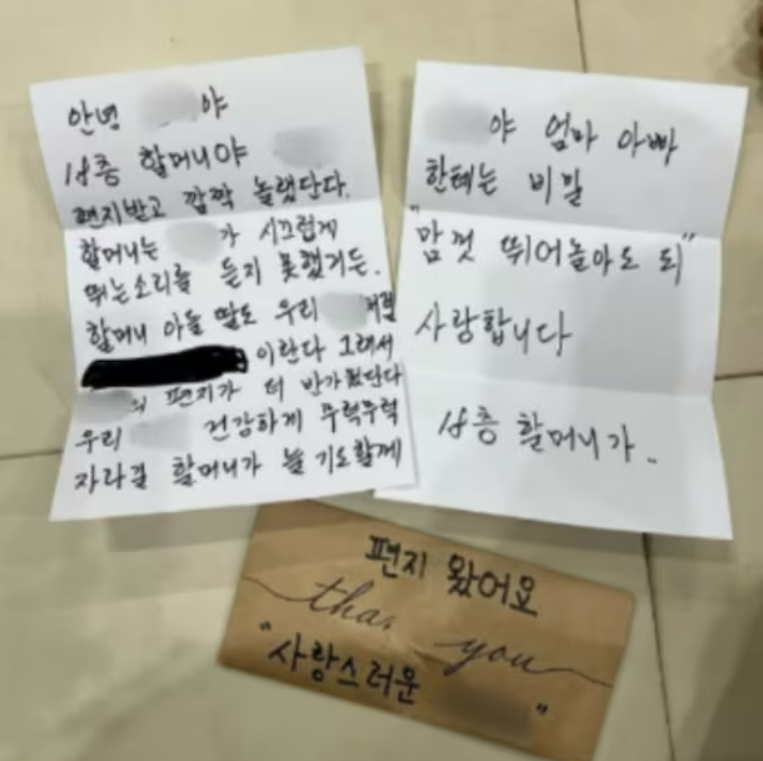 안녕 야
18층 할머니야
편지받고 깜짝 놀랬단다.
할머니는 가 시끄럽게
뛰는소리를 듣지 못했거든.
할머니 아들 딸도 우리 처럼
이란다 그래서
의 편지가 더 반가웠단다
우리 건강하게 무럭무럭
자라길 할머니가 늘 기도할게
야 엄마 아빠
한테는 비밀
"맘껏 뛰어놀아도 되"
사랑합니다
18층 할머니가.
편지 왔어요
thank you
"사랑스러운 "